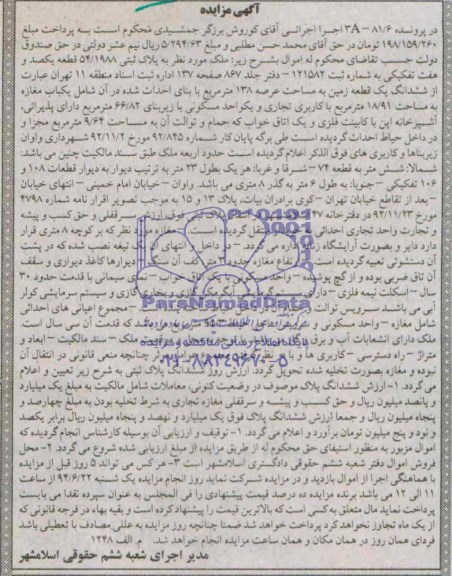 آگهی مزایده
در پرونده ۸۱/۶ - ۳A اجرا اجرائی آقای کوروش برزگر جمشیدی محکوم است به پرداخت مبلغ
۱۹۸/۱۵۹/۲۶۰ تومان در حق آقای محمد حسن مطلبی و مبلغ ۵/۲۹۴/۶۳ ریال نیم عشر دولتی در حق صندوق
دولت حسب تقاضای محکوم له اموال بشرح زیر: ملک مورد نظر به پلاک ثبتی ۵۴/۱۹۸۸ قطعه یکصد و
هفت تفکیکی به شماره ثبت ۱۲۱۵۸۲ - دفتر جلد ۸۶۷ صفحه ۱۳۷ اداره ثبت اسناد منطقه ۱۱ تهران عبارت
از ششدانگ یک قطعه زمین به مساحت عرصه ۱۳۸ مترمربع با بنای احداث شده در آن شامل یکباب مغازه
به مساحت ۱۸/۹۱ مترمربع با کاربری تجاری و یکواحد مسکونی با زیربنای ۶۶/۸۲ مترمربع دارای پذیرائی،
آشپزخانه اپن با کابینت فلزی و یک اتاق خواب که حمام و توالت آن به مساحت ۹/۶۴ مترمربع مجزا و
در داخل حیاط احداث گردیده است طی برگه پایان کار شماره ۹۲/۸۴۵ مورخ ۹۲/۱۱/۲ شهرداری واوان
زیربناها و کاربری های فوق الذکر اعلام گردیده است حدود اربعه ملک طبق سند مالکیت چنین می باشد:
شمالا: شش متر به قطعه ۷۴ - شرقا و غربا: هر یک بطول ۲۳ متر به ترتیب دیوار به دیوار قطعات ۱۰۸ و
۱۰۶ تفکیکی - جنوبا: به طول ۶ متر به گذر ۸ متری می باشد. واوان - خیابان امام خمینی - انتهای خیابان
بعد از تقاطع خیابان تهران - کوی برادران بیات، پلاک ۱۳ و ۱۵ به موجب تصویر اقرار نامه شماره ۴۷۹۸
مورخ ۹۲/۱۱/۲۳ در دفترخانه ۴۷ پلاک ثبتی فوق سرقفلی و حق کسب و پیشه
و تجارت واحد تجاری احداثی منتقل گردیده است مغازه مورد نظر که بر کوچه ۸ متری قرار
دارد دایر و بصورت آرایشگاه زنانه می گردد. در داخل و انتهای آن یک تیغه نصب شده که در پشت
آن دستشوئی تعبیه گردیده است ارتفاع مغازه حدود ۳ متر کف آن سنگ دیوارها کاغذ دیواری و سقف
آن تاق ضربی بوده و از گچ پوشیده واحد مسکونی یک اتاق خواب نمای سیمانی با قدمت حدود ۳۰
سال - اسکلت نیمه فلزی - دارای آبگرمکن گازی و بخاری گازی و سیستم سرمایشی کولر
آبی می باشد سرویس توالت مجموع اعیانی های احداثی
شامل مغازه - واحد مسکونی و که قدمت آن سی سال است
ملک دارای انشعابات آب و برق ملک - سند مالکیت - ابعاد و
متراژ - راه دسترسی - کاربری ها چنانچه منعی قانونی در انتقال آن
نبوده و مغازه بصورت تخلیه شده تحویل گردد. ارزش ششدانگ پلاک ثبتی به شرح زیر تعیین و اعلام
می گردد. ۱- ارزش ششدانگ پلاک موصوف در وضعیت کنونی، معاملات شامل مالکیت به مبلغ یک میلیارد
و پانصد میلیون ریال و حق کسب و پیشه و سرقفلی مغازه تجاری به شرط تخلیه بودن به مبلغ چهارصد و
پنجاه میلیون ریال و جمعا ارزش ششدانگ پلاک فوق یک میلیارد و نهصد و پنجاه میلیون ریال برابر یکصد
و نود و پنج میلیون تومان برآورد و اعلام می گردد. ۱- توقیف و ارزیابی آن بوسیله کارشناس انجام گردیده که
اموال مزبور به منظور استیفای حق محکوم له از طریق مزایده از مبلغ ارزیابی شده شروع می گردد. ۲- محل
فروش اموال دفتر شعبه ششم حقوقی دادگستری اسلامشهر است ۳- هر کس می تواند ۵ روز قبل از مزایده
با هماهنگی اجرا از اموال بازدید و در مزایده شرکت نماید روز انجام مزایده یک شنبه ۹۴/۶/۲۲ از ساعت
۱۱ الی ۱۲ می باشد برنده مزایده ده درصد قیمت پیشنهادی را فی المجلس به عنوان سپرده نقدا می بایست
پرداخت نماید مال متعلق به کسی است که بالاترین قیمت را پیشنهاد کرده است و بقیه بهاء در فرجه قانونی که
از یک ماه تجاوز نخواهد کرد پرداخت خواهد شد ضمنا چنانچه روز مزایده به عللی مصادف با تعطیلی باشد
فردای همان روز در همان مکان و همان ساعت مزایده انجام خواهد شد. م الف ۱۲۴۸
مدیر اجرای شعبه ششم حقوقی اسلامشهر
ParsNamadData
۰۲۱-۸۸۳۴۹۶۷۰-۵